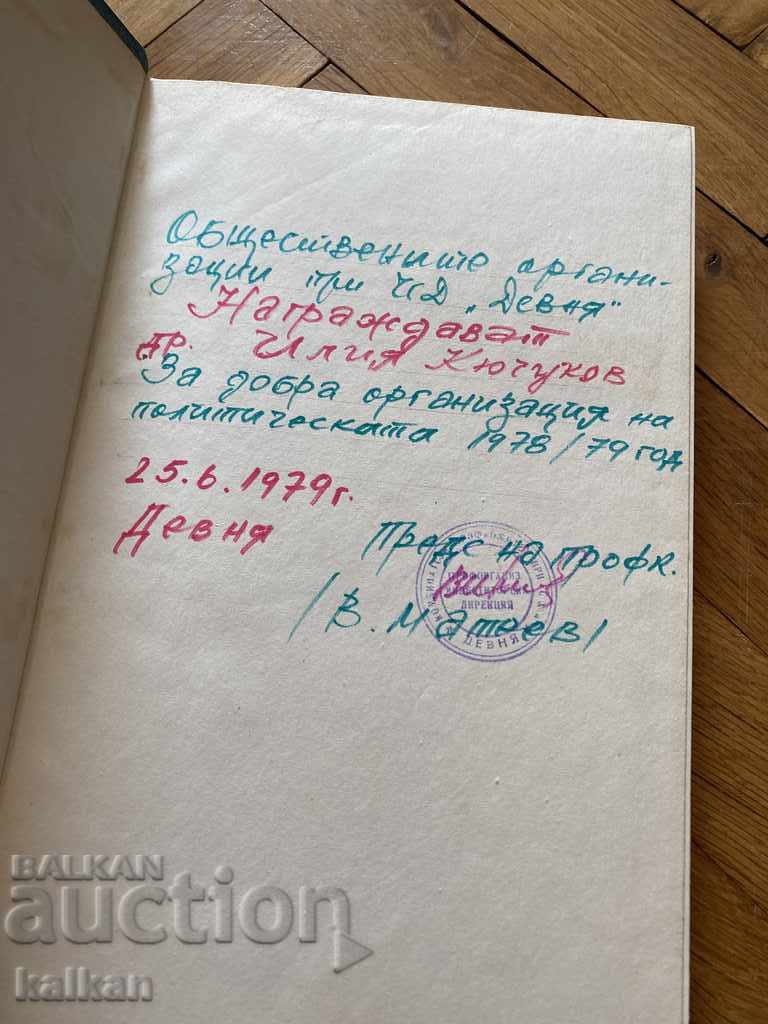 Обществените органи-
зации при ИД „Девня"
Награждават
др. Илия Кючуков
За добра организация на
политическата 1978/79 год
25.6.1979г.
Девня
Предс на профк.
ДИРЕКЦИЯ
ДЕВНЯ
/В. Матеев/
BALKAN
auction
kalkan